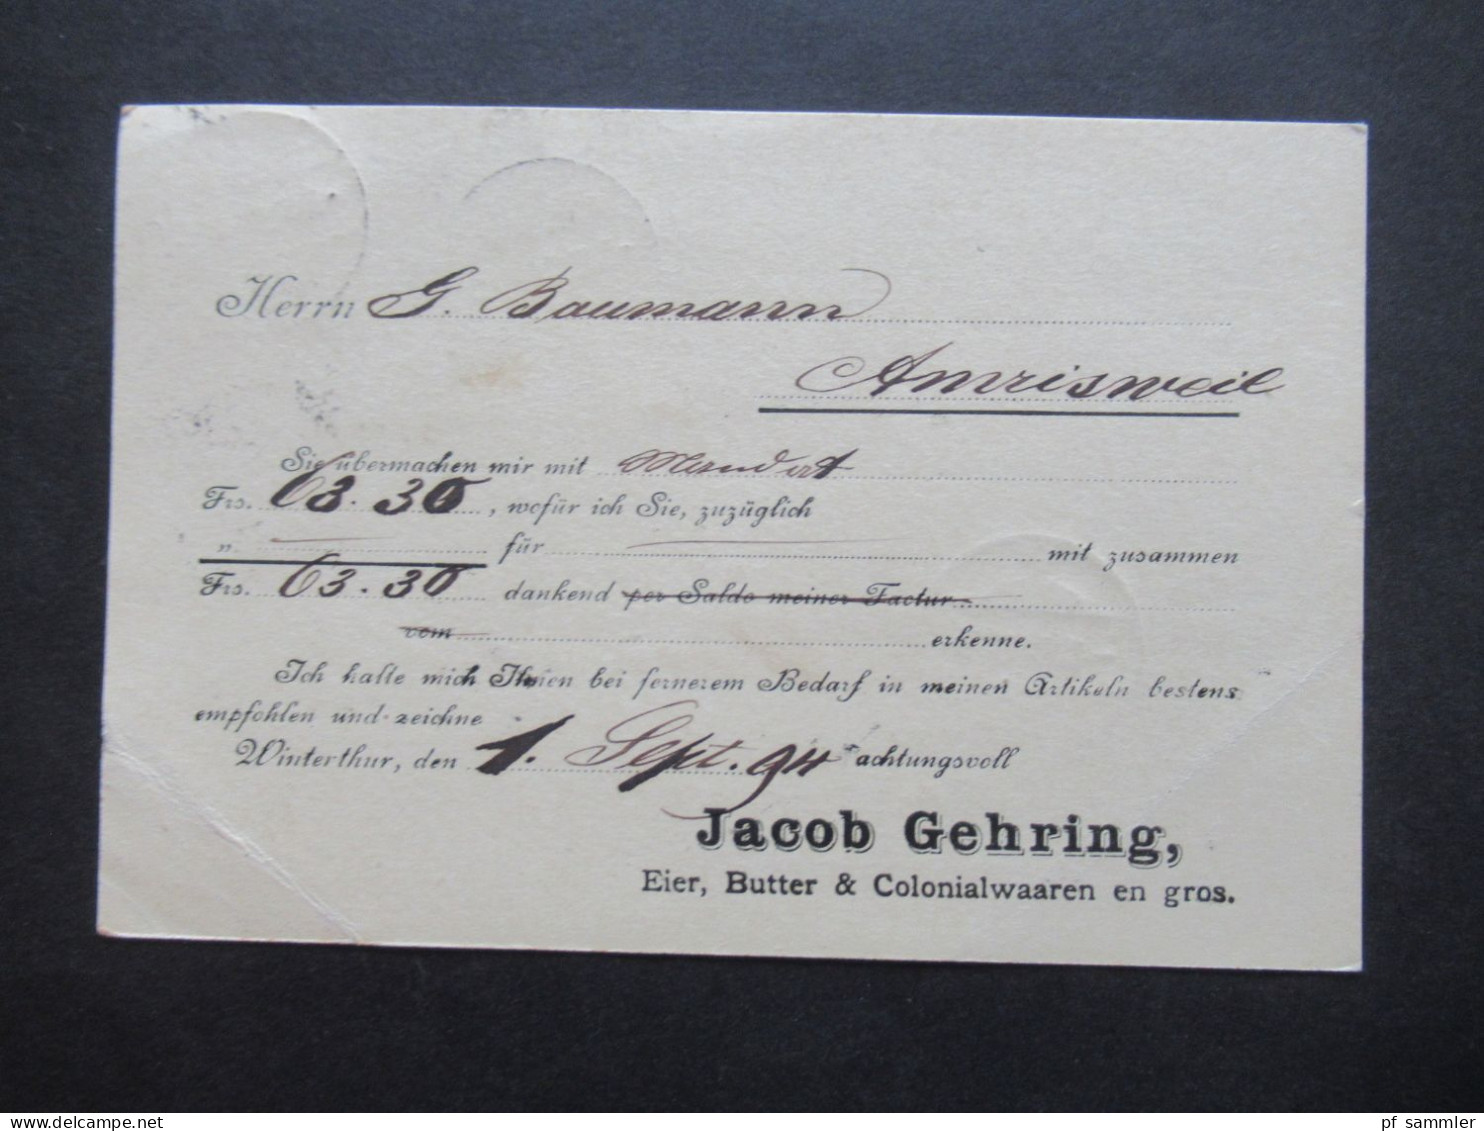 Herrn G. Baumann
Amrisweil
Sie übermachen mir mit Mandat
Frs. 63.30, wofür ich Sie, zuzüglich
„ für mit zusammen
Frs. 63.30 dankend per Saldo meiner Factur
vom erkenne.
Ich halte mich Ihnen bei fernerem Bedarf in meinen Artikeln bestens
empfohlen und zeichne
Winterthur, den 1. Sept. 94 achtungsvoll
Jacob Gehring,
Eier, Butter & Colonialwaaren en gros.
pf sammler